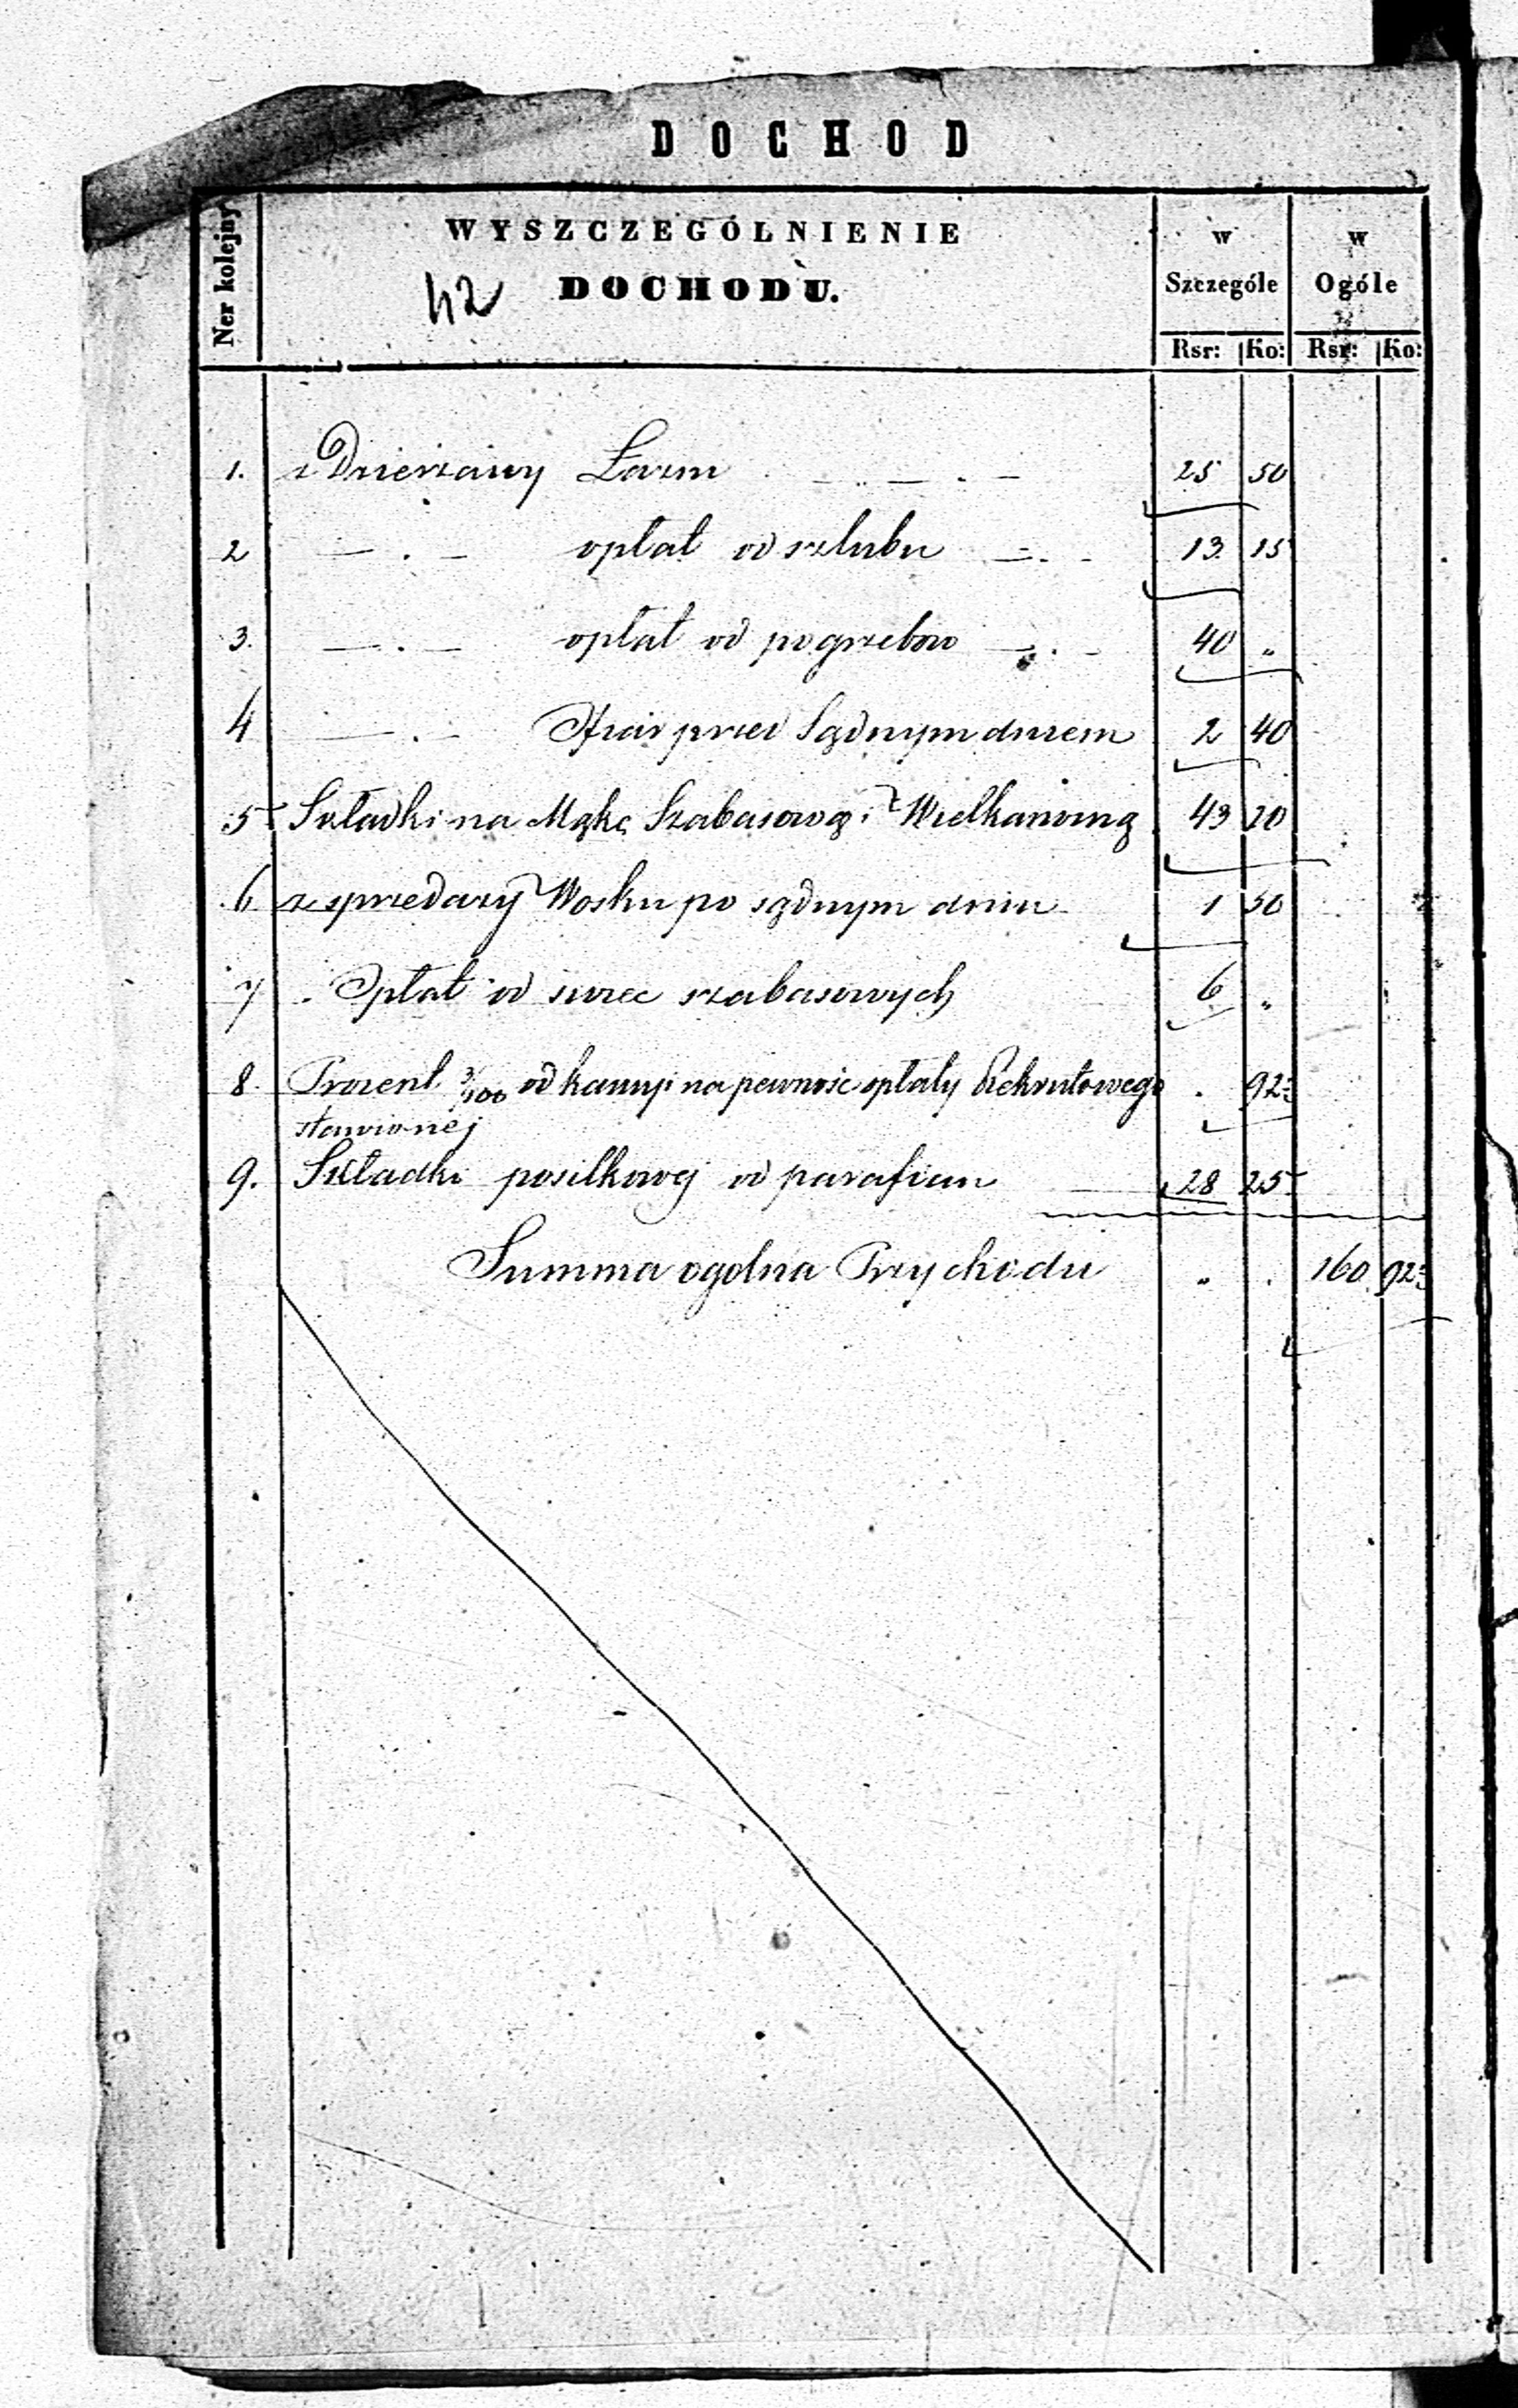 DOCHOD
Ner kolejny
WYSZCZEGÓLNIENIE
DOCHODU.
42
w Szczególe
w Ogóle
Rsr: Ko: Rsr: Ko:
1. z Dzierzawy Łazni 25 50
2 — . — opłat od szlubu — . - 13 15
3. — . — opłat od pogrzebow — . - 40 "
4 — . — przed Sądnym dniem 2 40
5 Składki na Mąkę Szabasową i Wielkanocną 43 20
6 z sprzedarzy Wosku po sądnym dniu 1 50
7 Opłat od swiec szabasowych 6 "
8. Procent 3/100 od kaucyi na pewnosc opłaty Rekrutowego . 92
stawionej
9. Składki posilkowej od parafian 28 25
Summa ogolna Przychodu " . 160 92